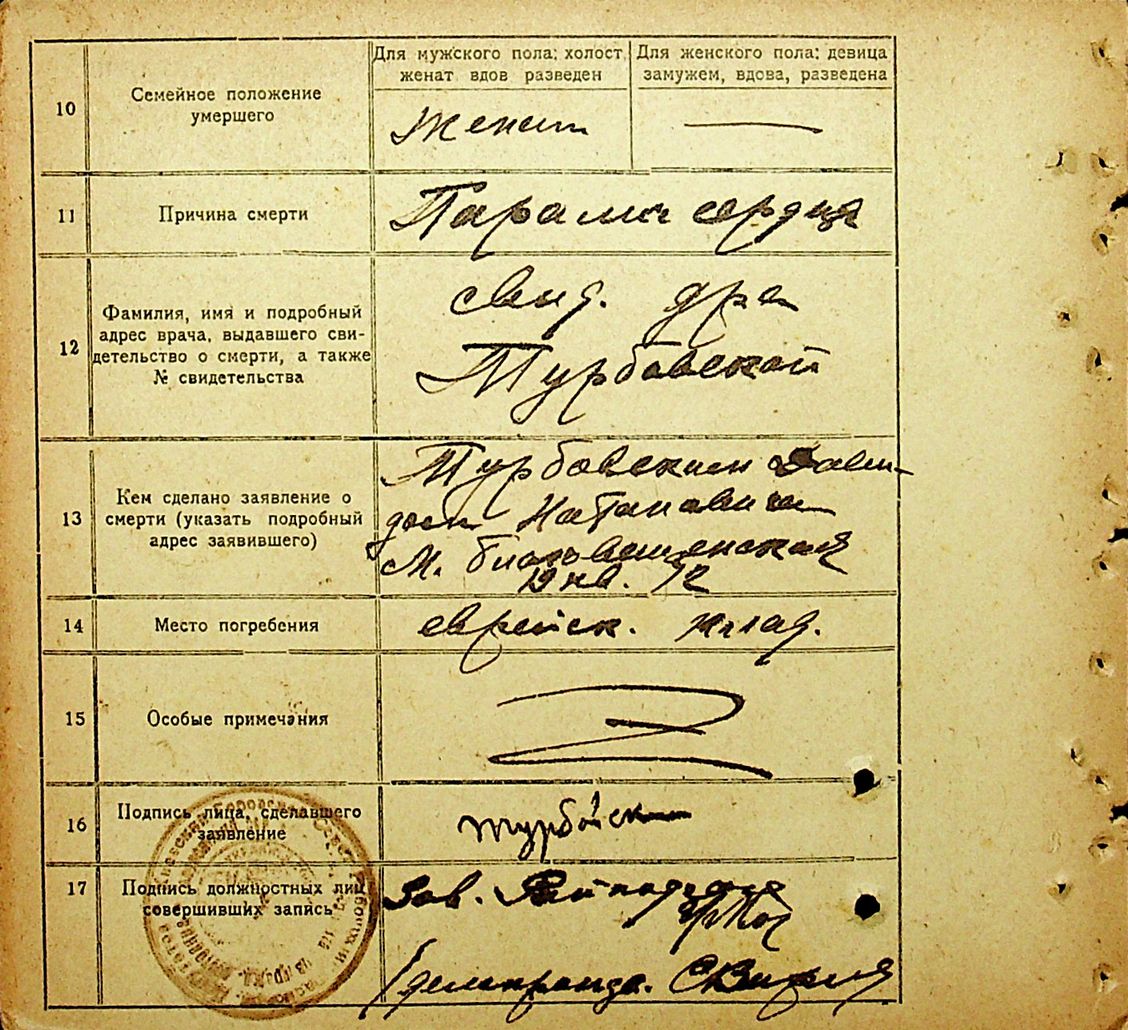 10
Семейное положение
умершего
Для мужского пола: холост
женат вдов разведен
Для женского пола: девица
замужем, вдова, разведена
Женат
11
Причина смерти
Паралич сердца
12
Фамилия, имя и подробный
адрес врача, выдавшего сви-
детельство о смерти, а также
№ свидетельства
свид. дра
Турбовской
13
Кем сделано заявление о
смерти (указать подробный
адрес заявившего)
Турбовским Дави-
дом Натановичем
М.
кв. 12
14
Место погребения
еврейск. клад.
15
Особые примечания
16
Подпись лица, сделавшего
заявление
Турбовск
17
Подпись должностных лиц
совершивших запись
Зав.
делопроизв.